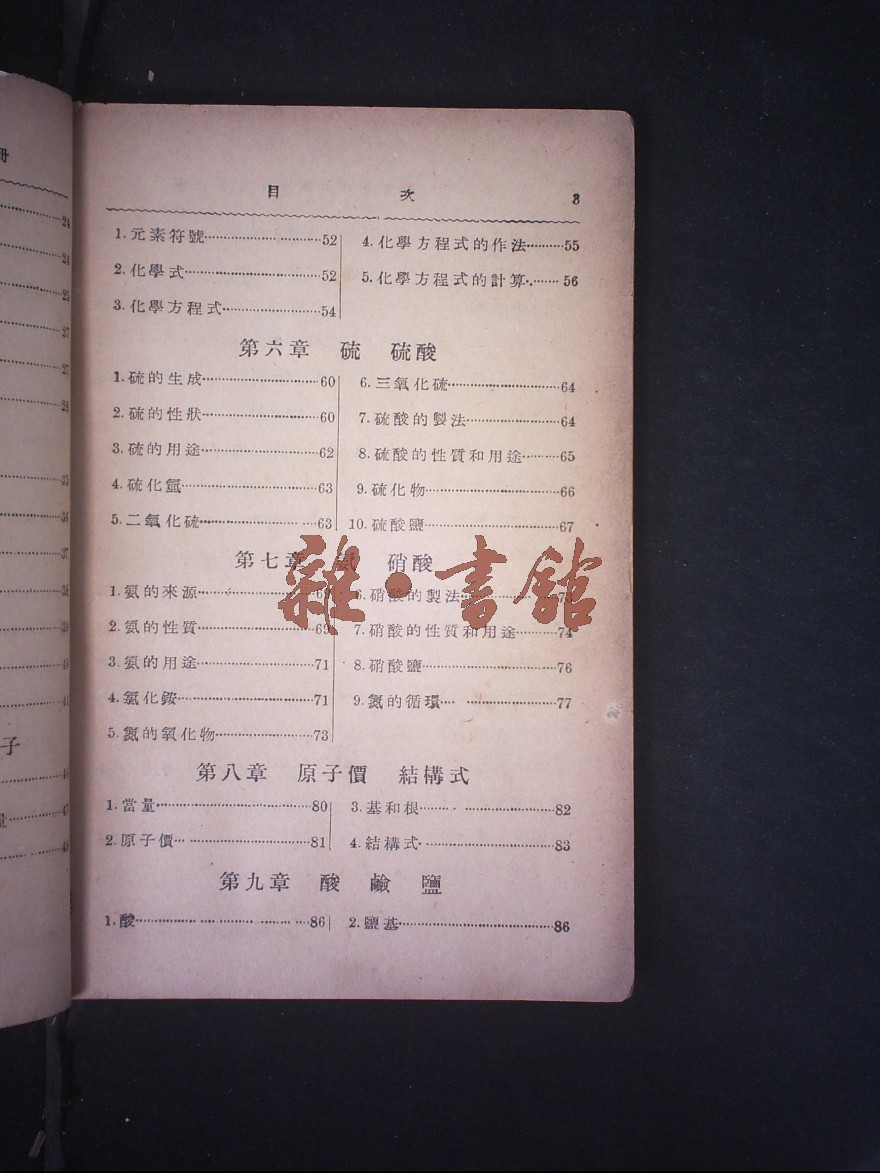 目 次 3
1. 元素符號 52
2. 化學式 52
3. 化學方程式 54
4. 化學方程式的作法 55
5. 化學方程式的計算 56
第六章 硫 硫酸
1. 硫的生成 60
2. 硫的性狀 60
3. 硫的用途 62
4. 硫化氫 63
5. 二氧化硫 63
6. 三氧化硫 64
7. 硫酸的製法 64
8. 硫酸的性質和用途 65
9. 硫化物 66
10. 硫酸鹽 67
第七章 氨 硝酸
1. 氨的來源
2. 氨的性質 69
3. 氨的用途 71
4. 氯化銨 71
5. 氮的氧化物 73
6. 硝酸的製法
7. 硝酸的性質和用途 74
8. 硝酸鹽 76
9. 氮的循環 77
第八章 原子價 結構式
1. 當量 80
2. 原子價 81
3. 基和根 82
4. 結構式 83
第九章 酸 鹼 鹽
1. 酸 86
2. 鹽基 86
雜·書館
冊
24
24
25
27
27
28
33
36
37
38
39
40
41
子
46
量 47
48